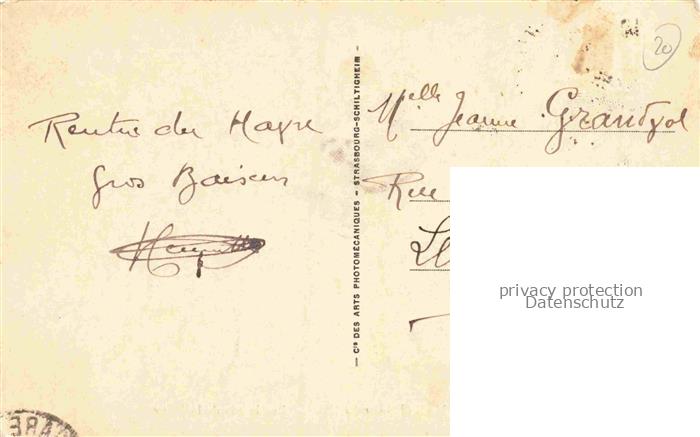 20
Rentre du Havre
Gros Baisers
— Cie DES ARTS PHOTOMÉCANIQUES - STRASBOURG-SCHILTIGHEIM —
Melle Jeanne Grandjol
Rue
privacy protection
Datenschutz